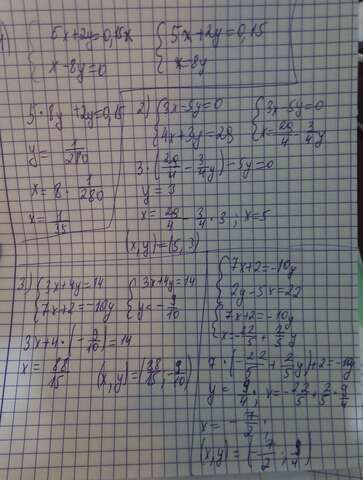 1) { 5x+2y=0,15x { 5x+2y=0,15
x-8y=0 x=8y
5·8y+2y=0,15
y= 1/280
x=8·1/280
x=1/35
2) { 3x-5y=0 { 3x-5y=0
4x+3y=29 x=29/4-3/4y
3·(29/4-3/4y)-5y=0
y=3
x=29/4-3/4·3; x=5
(x,y)=(5,3)
3) { 3x+4y=14 { 3x+4y=14
7x+2=-10y y=-9/10
3x+4·(-9/10)=14
x=88/15 (x,y)=(88/15,-9/10)
{ 7x+2=-10y
2y-5x=22
{ 7x+2=-10y
x=-22/5+2/5y
7·(-22/5+2/5y)+2=-10y
y=9/4; x=-22/5+2/5·9/4
x=-7/2;
(x,y)=(-7/2;9/4)